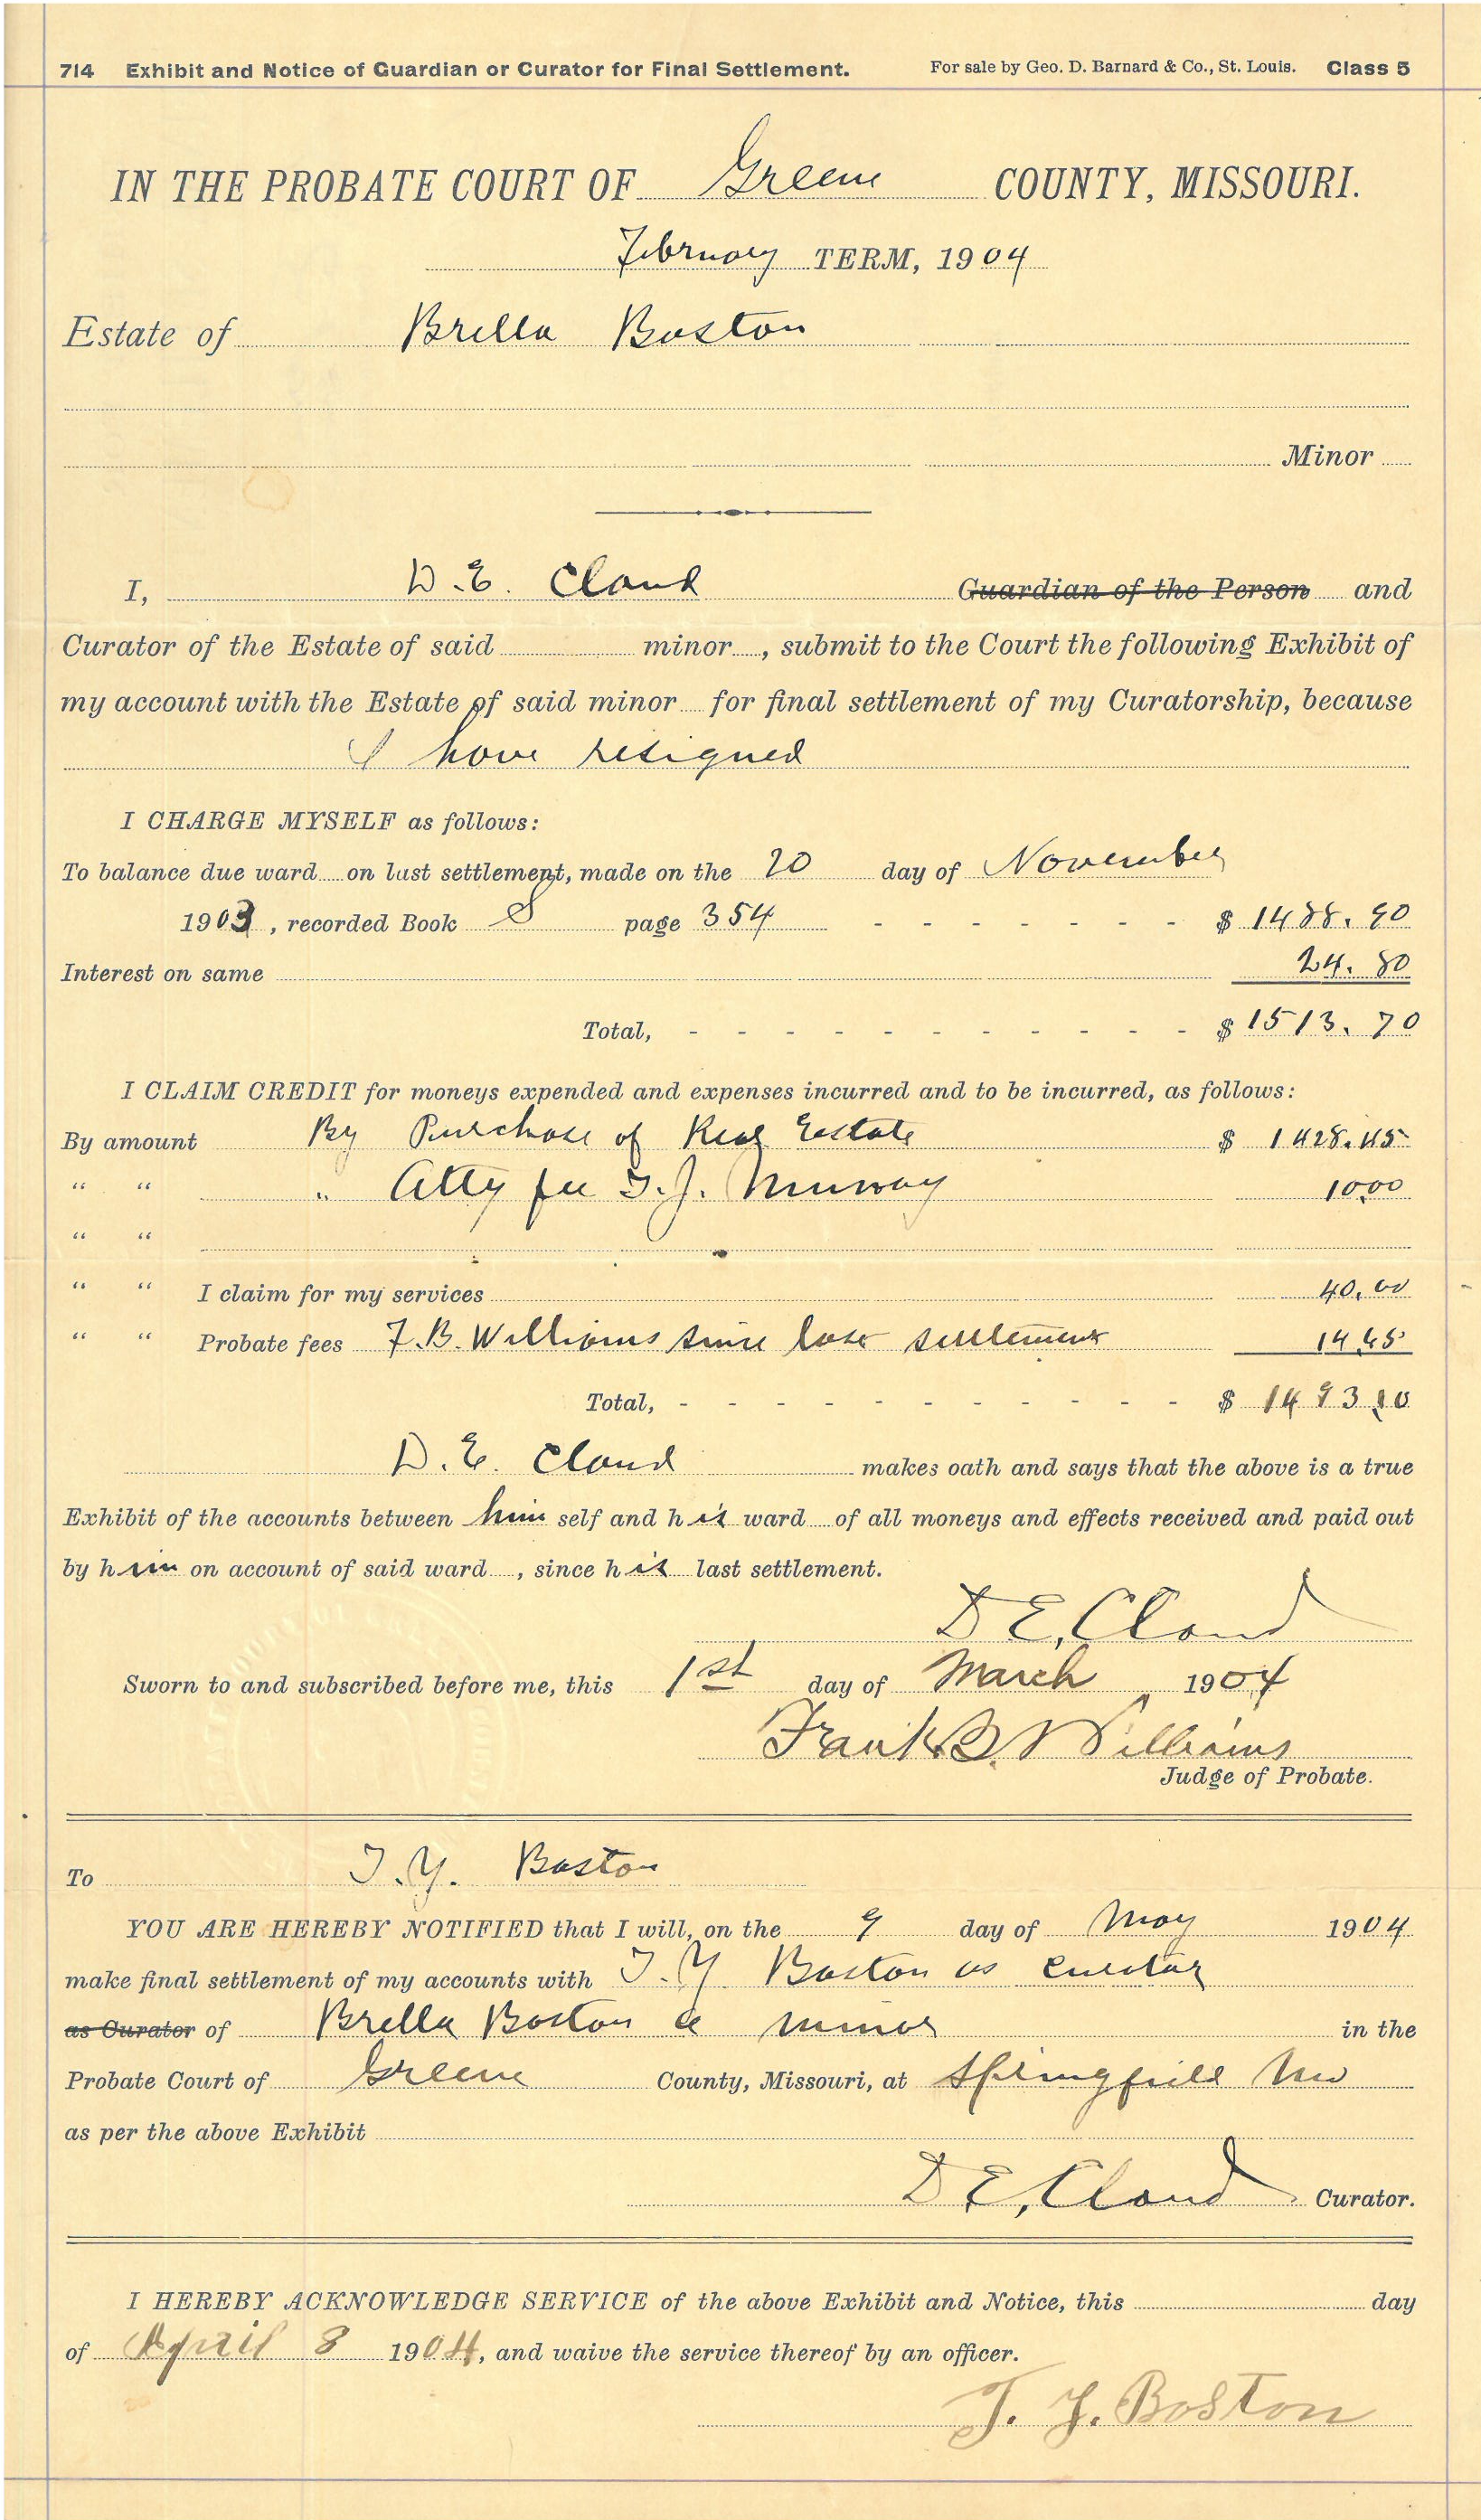 714 Exhibit and Notice of Guardian or Curator for Final Settlement. For sale by Geo. D. Barnard & Co., St. Louis. Class 5
IN THE PROBATE COURT OF Greene COUNTY, MISSOURI.
February TERM, 1904
Estate of Brella Boston
Minor
I, D.E. Cloud Guardian of the Person and
Curator of the Estate of said minor , submit to the Court the following Exhibit of
my account with the Estate of said minor for final settlement of my Curatorship, because
I have resigned
I CHARGE MYSELF as follows:
To balance due ward on last settlement, made on the 20 day of November
1903 , recorded Book S page 354 - - - - - - - $ 1488.90
Interest on same 24.80
Total, - - - - - - - - - - - $ 1513.70
I CLAIM CREDIT for moneys expended and expenses incurred and to be incurred, as follows:
By amount By Purchase of Real Estate $ 1428.45
" " " Atty fee T.J. Murray 10.00
" "
" " I claim for my services 40.00
" " Probate fees F.B. Williams since last settlement 14.65
Total, - - - - - - - - - - - $ 1493.10
D.E. Cloud makes oath and says that the above is a true
Exhibit of the accounts between him self and his ward of all moneys and effects received and paid out
by him on account of said ward , since his last settlement.
D E, Cloud
Sworn to and subscribed before me, this 1st day of March 1904
Frank B. Williams
Judge of Probate.
To T.Y. Boston
YOU ARE HEREBY NOTIFIED that I will, on the 9 day of May 1904
make final settlement of my accounts with T.Y Boston as curator
as Curator of Brella Boston a minor in the
Probate Court of Greene County, Missouri, at Springfield Mo
as per the above Exhibit
D E, Cloud Curator.
I HEREBY ACKNOWLEDGE SERVICE of the above Exhibit and Notice, this day
of April 8 1904, and waive the service thereof by an officer.
T. Y. Boston